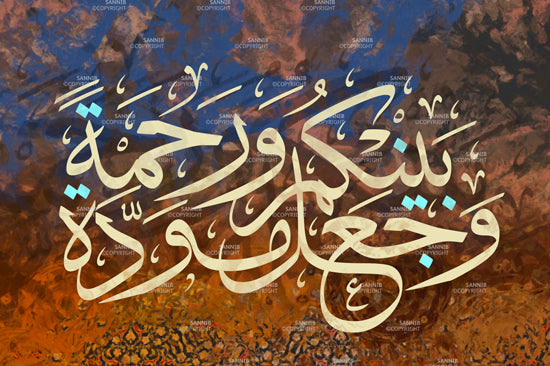 وَجَعَلَ بَيْنَكُمْ مَوَدَّةً وَرَحْمَةً
SANNIB
©COPYRIGHT